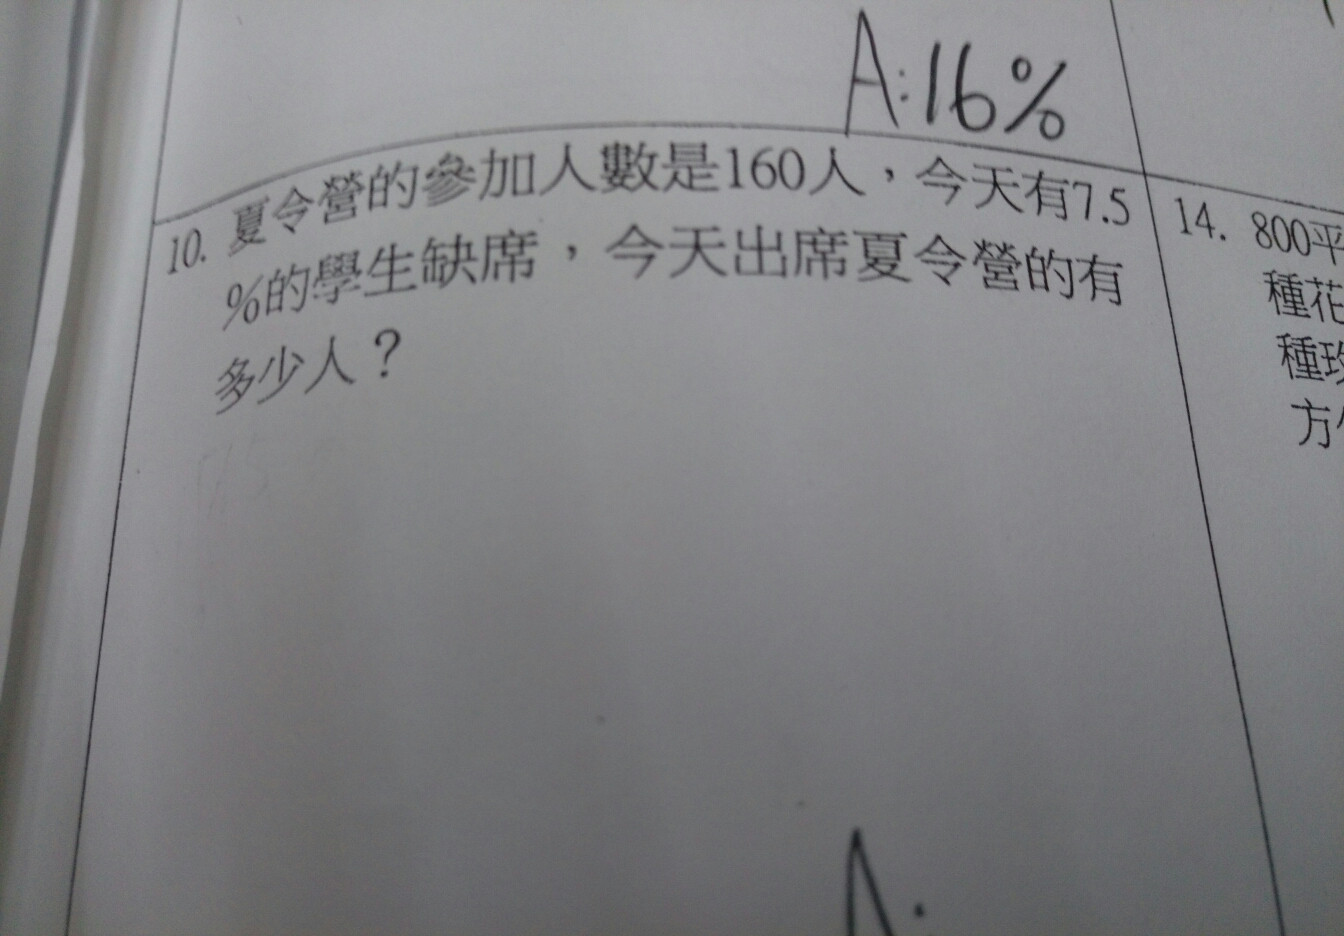 A:16%
10. 夏令營的參加人數是160人，今天有7.5
%的學生缺席，今天出席夏令營的有
多少人？
A:
14. 800平
種花
種玫
方